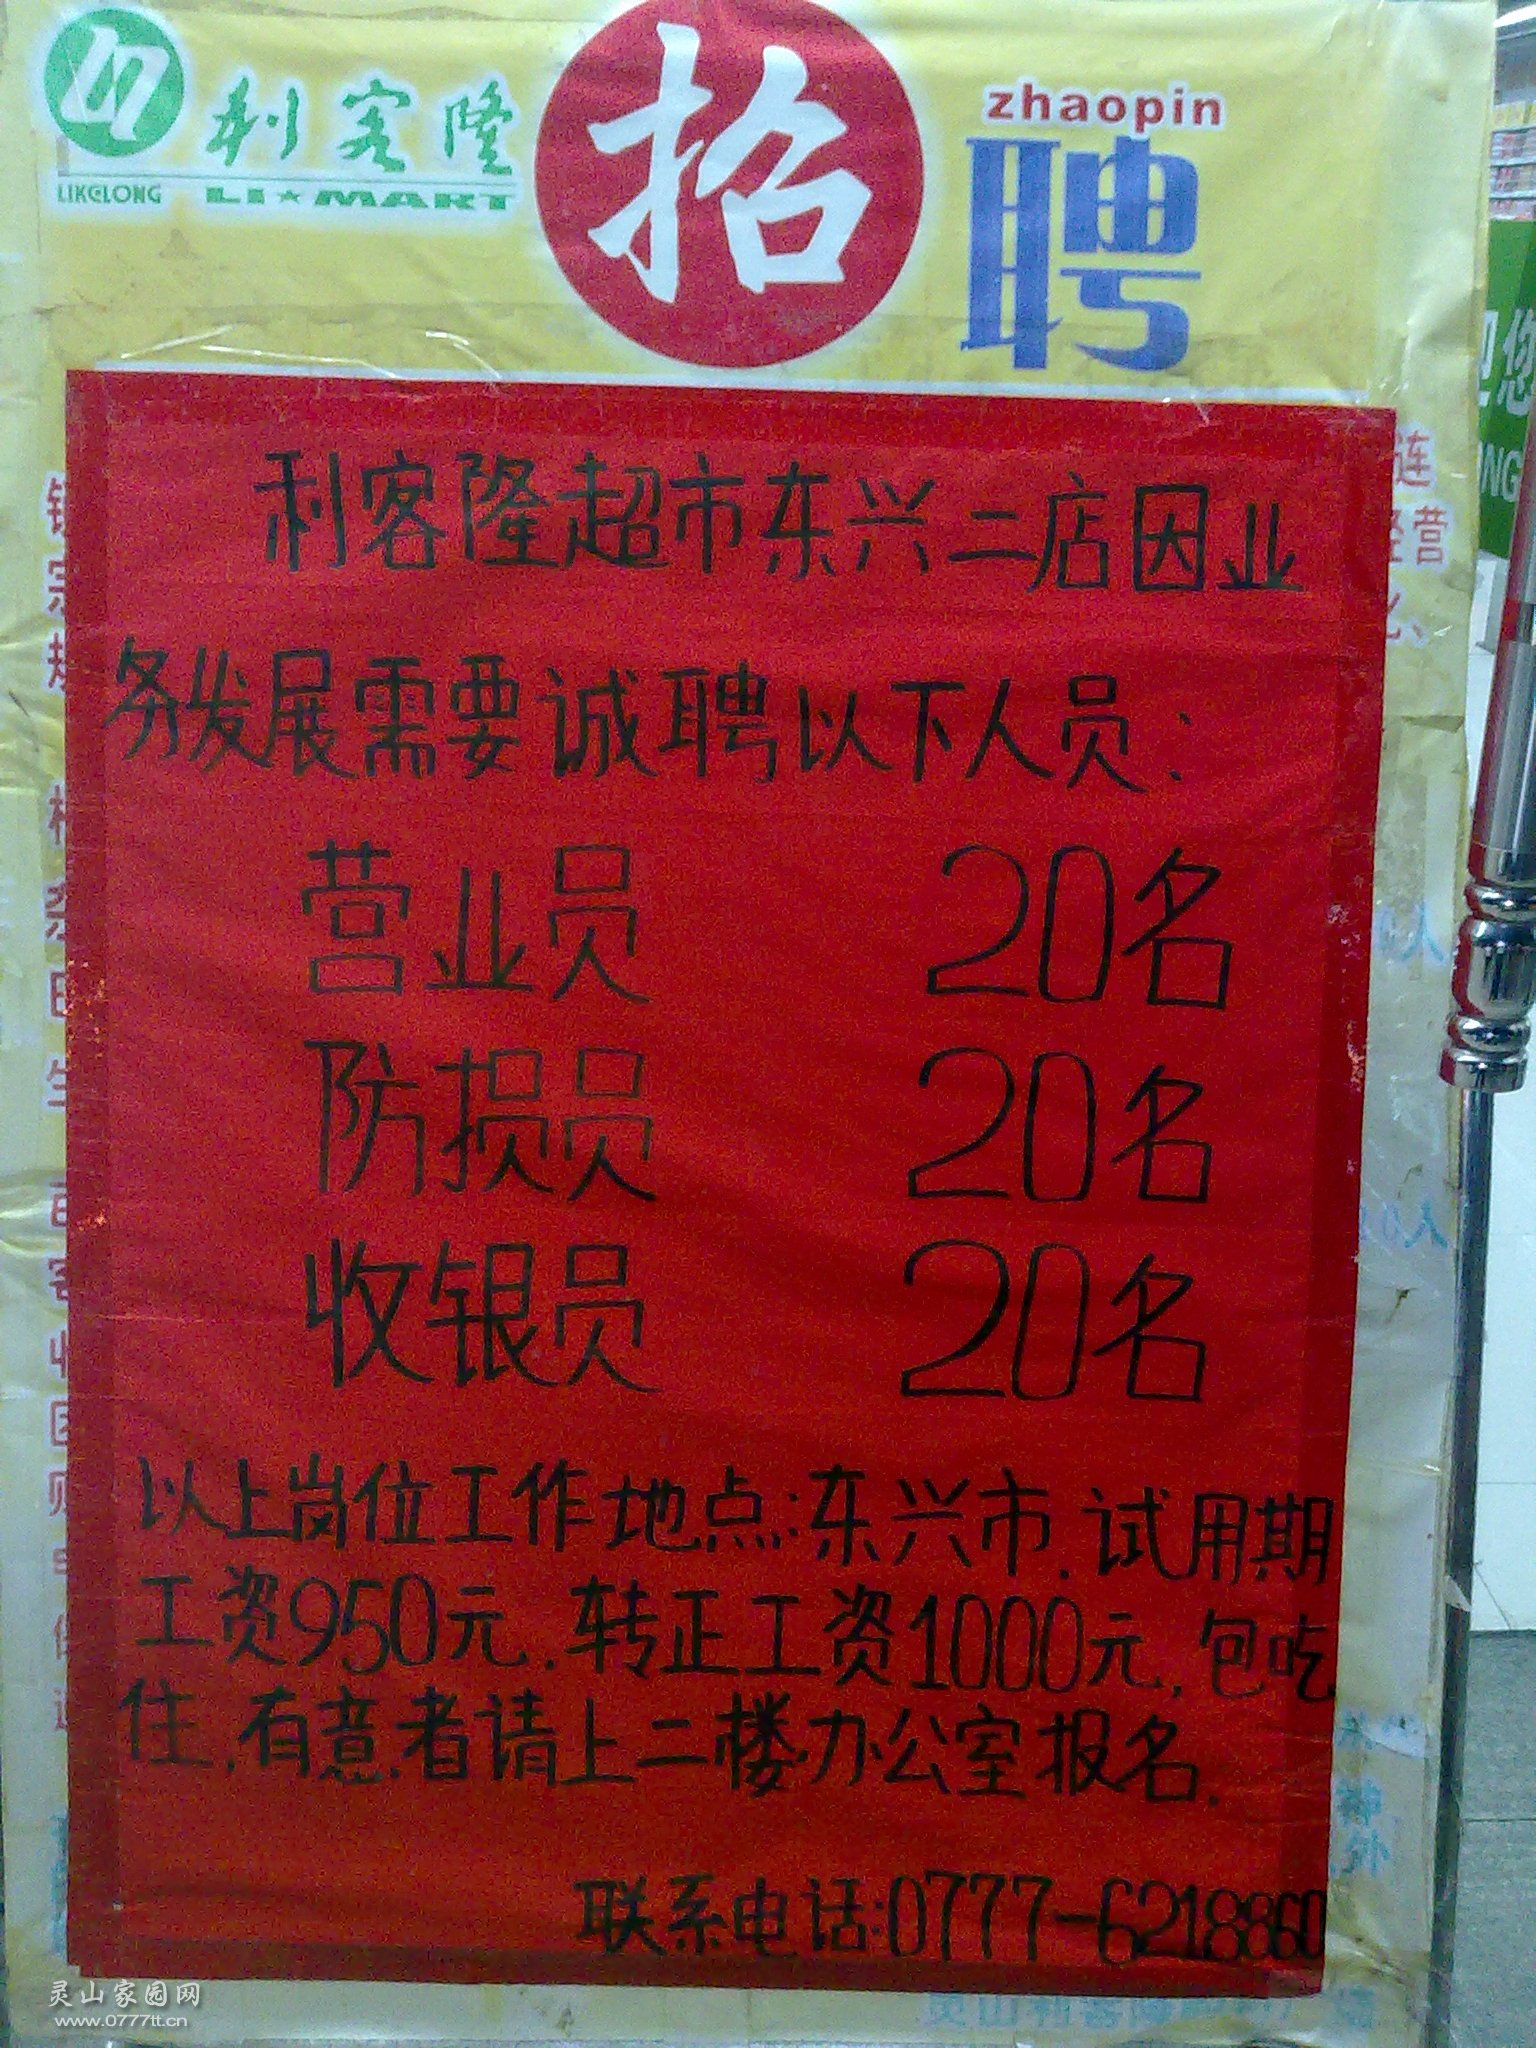 利客隆
LIKELONG LI★MART
招
zhaopin
聘
利客隆超市东兴二店因业
务发展需要诚聘以下人员：
营业员 20名
防损员 20名
收银员 20名
以上岗位工作地点：东兴市．试用期
工资950元．转正工资1000元，包吃
住，有意者请上二楼办公室报名．
联系电话：0777-6218860
灵山家园网
www.0777tt.cn